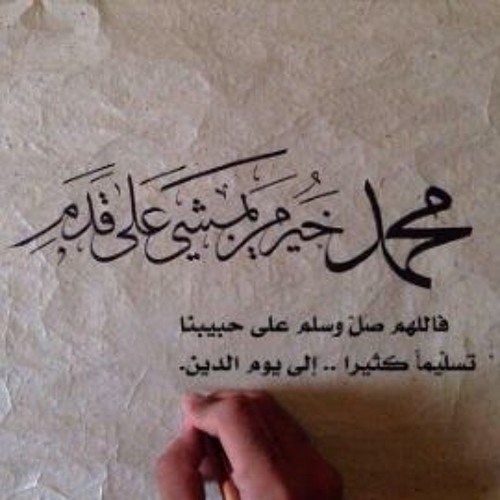 محمد خير من يمشي على قدم
فاللهم صلّ وسلم على حبيبنا
تسليماً كثيرا .. إلى يوم الدين.